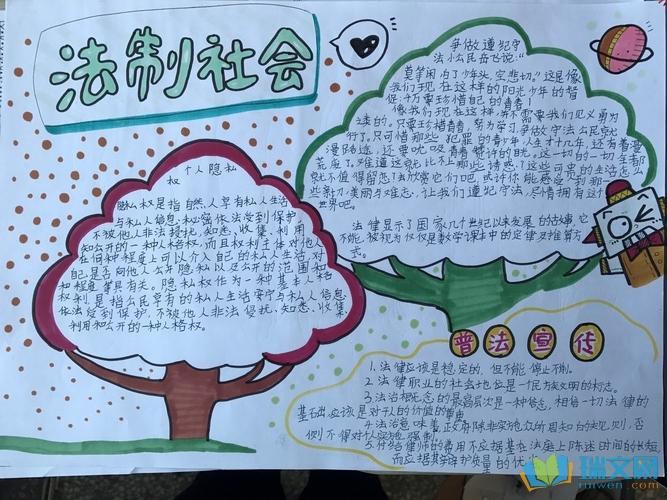 法制社会
个人隐私
权
隐私权是指自然人享有私人生活
与私人信息秘密依法受到保护
不被他人非法侵扰、知悉、收集、利用
知公开的一种人格权,而且权利主体对他人
在何种程度上可以介入自己的私人生活,对
自己是否向他人公开隐私以及公开的范围和
和程度等具有决。隐私权作为一种基本人格
权利是指公民享有的私人生活安宁与私人信息
依法受到保护,不被他人非法侵扰、知悉、收集,
利用和公开的一种人格权。
争做遵纪守
法小公民岳飞说:“
莫等闲,白了少年头,空悲切。”这是像
我们现在这样的阳光少年的督
促:千万要珍惜自己的青春!
像我们现在这样,并不需要我们见义勇为
只要珍惜青春,努力学习,争做守法公民就
行了。只可惜那些犯罪的青少年,人生才十几年,还有着
漫长路途,还要
法律显示了国家几个世纪以来发展的故事,它
不能被视为仅仅是数学课本中的定律及推算方
式。
普法宣传
1.法律应该是稳定的,但不能停止不制。
2.法律职业的社会地位是一个民族文明的标志。
3.法治概念的最高层次是一种信念,相信一切法律的
基础,应该是对于人的价值的尊重
4.法治意味着,政府除非实施众所周知的规则,否
则不得对个人实施强制。
5.付给律师的费用不应据基在法庭上陈述时间的长短
而应据其辩护质量的优劣
瑞文网
rniwen.com